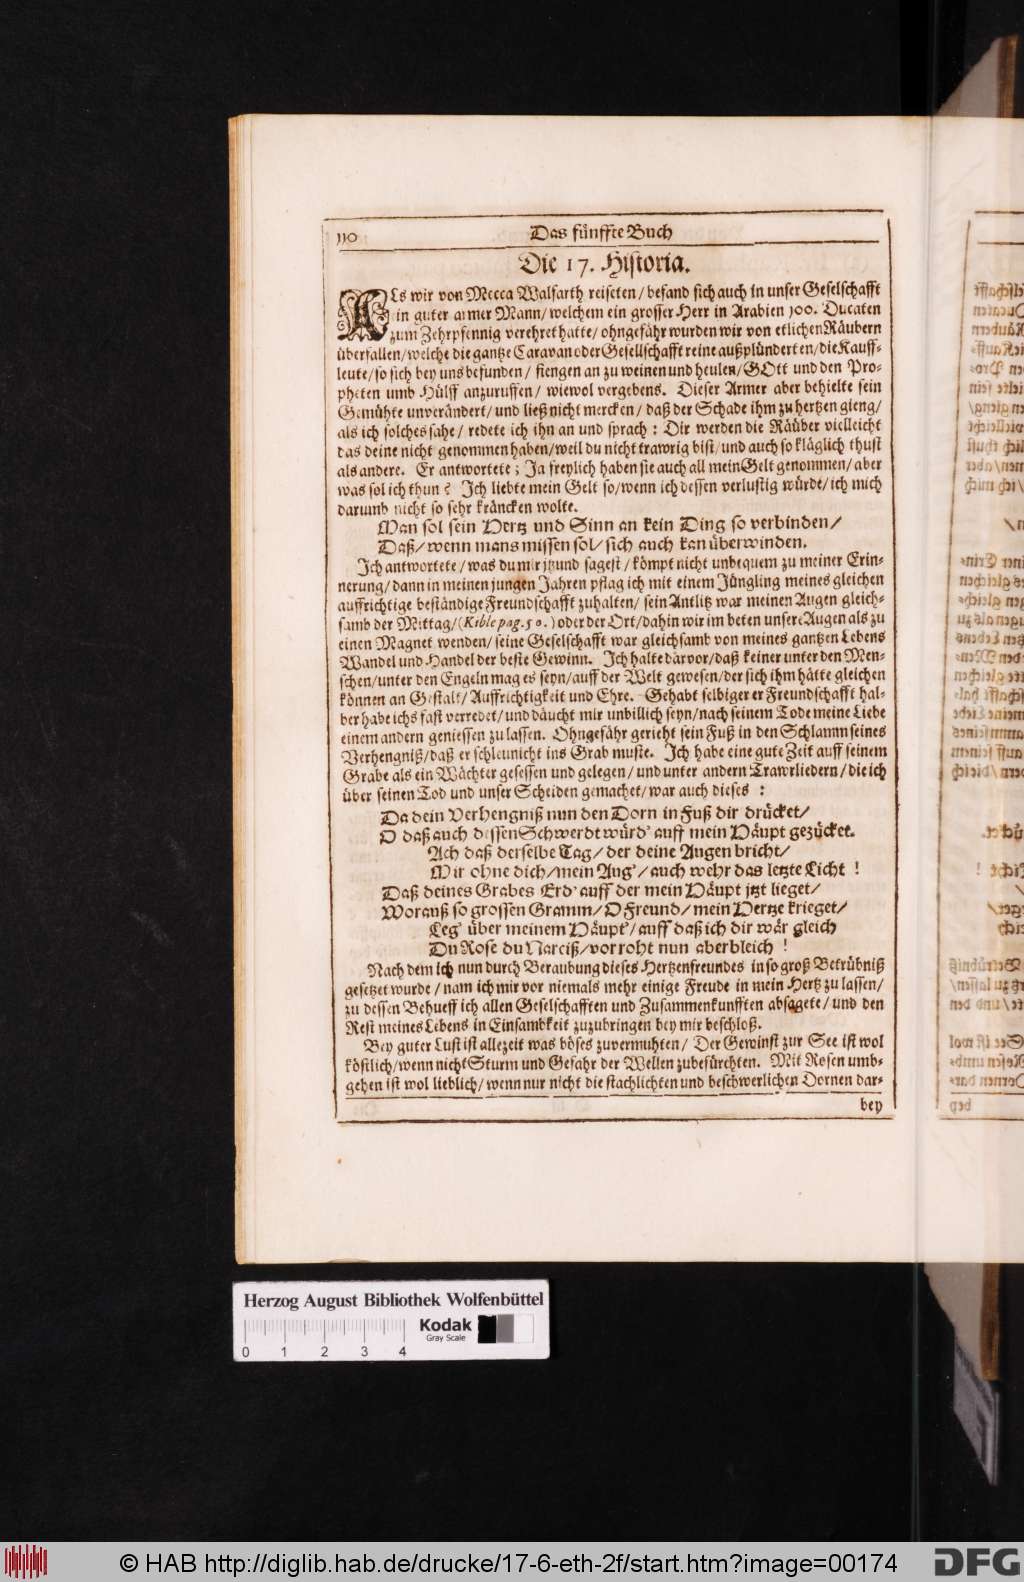 110
Das fünffte Buch
Die 17. Historia.
ALs wir von Mecca Walfarth reiseten/ befand sich auch in unser Geselschafft
ein guter armer Mann/ welchem ein grosser Herr in Arabien 100. Ducaten
zum Zehrpfennig verehret hatte/ ohngefähr wurden wir von etlichen Räubern
überfallen/ welche die gantze Caravan oder Gesellschafft reine außplünderten/ die Kauff-
leute/ so sich bey uns befunden/ fiengen an zu weinen und heulen/ GOtt und den Pro-
pheten umb Hülff anzuruffen/ wiewol vergebens. Dieser Armer aber behielte sein
Gemühte unverändert/ und ließ nicht mercken/ daß der Schade ihm zu hertzen gieng/
als ich solches sahe/ redete ich ihn an und sprach: Dir werden die Räuber vielleicht
das deine nicht genommen haben/ weil du nicht trawrig bist/ und auch so kläglich thust
als andere. Er antwortete; Ja freylich haben sie auch all mein Gelt genommen/ aber
was sol ich thun? Ich liebte mein Gelt so/ wenn ich dessen verlustig würde/ ich mich
darumb nicht so sehr kräncken wolte.
Man sol sein Hertz und Sinn an kein Ding so verbinden/
Daß/ wenn mans missen sol/ sich auch kan überwinden.
Ich antwortete/ was du mir jtzund sagest/ kömpt nicht unbequem zu meiner Erin-
nerung/ dann in meinen jungen Jahren pflag ich mit einem Jüngling meines gleichen
auffrichtige beständige Freundschafft zuhalten/ sein Antlitz war meinen Augen gleich-
samb der Mittag/ (Kible pag. 50.) oder der Ort/ dahin wir im beten unsere Augen als zu
einen Magnet wenden/ seine Geselschafft war gleichsamb von meines gantzen Lebens
Wandel und Handel der beste Gewinn. Ich halte darvor/ daß keiner unter den Men-
schen/ unter den Engeln mag es seyn/ auff der Welt gewesen/ der sich ihm hätte gleichen
können an Gestalt/ Auffrichtigkeit und Ehre. Gehabt selbiger er Freundschafft hal-
ber habe ichs fast verredet/ und däucht mir unbillich seyn/ nach seinem Tode meine Liebe
einem andern geniessen zu lassen. Ohngefähr gerieht sein Fuß in den Schlamm seines
Verhengniß/ daß er schleunicht ins Grab muste. Ich habe eine gute Zeit auff seinem
Grabe als ein Wächter gesessen und gelegen/ und unter andern Trawrliedern/ die ich
über seinen Tod und unser Scheiden gemachet/ war auch dieses:
Da dein Verhengniß nun den Dorn in Fuß dir drücket/
O daß auch dessen Schwerdt würd' auff mein Häupt gezücket.
Ach daß derselbe Tag/ der deine Augen bricht/
Mir ohne dich/ mein Aug'/ auch wehr das letzte Licht!
Daß deines Grabes Erd' auff der mein Häupt jtzt lieget/
Worauß so grossen Gramm/ O Freund/ mein Hertze krieget/
Leg' über meinem Häupt'/ auff daß ich dir wär gleich
Du Rose du Narciß/ vor roht nun aber bleich!
Nach dem ich nun durch Beraubung dieses Hertzenfreundes in so groß Betrübniß
gesetzet wurde/ nam ich mir vor niemals mehr einige Freude in mein Hertz zu lassen/
zu dessen Behueff ich allen Geselschafften und Zusammenkunfften absagete/ und den
Rest meines Lebens in Einsambkeit zuzubringen bey mir beschloß.
Bey guter Lust ist allezeit was böses zuvermuhten/ Der Gewinst zur See ist wol
köstlich/ wenn nicht Sturm und Gefahr der Wellen zubefürchten. Mit Rosen umb-
gehen ist wol lieblich/ wenn nur nicht die stachlichten und beschwerlichen Dornen dar-
bey
Herzog August Bibliothek Wolfenbüttel
Kodak
Gray Scale
0 1 2 3 4
© HAB http://diglib.hab.de/drucke/17-6-eth-2f/start.htm?image=00174
DFG